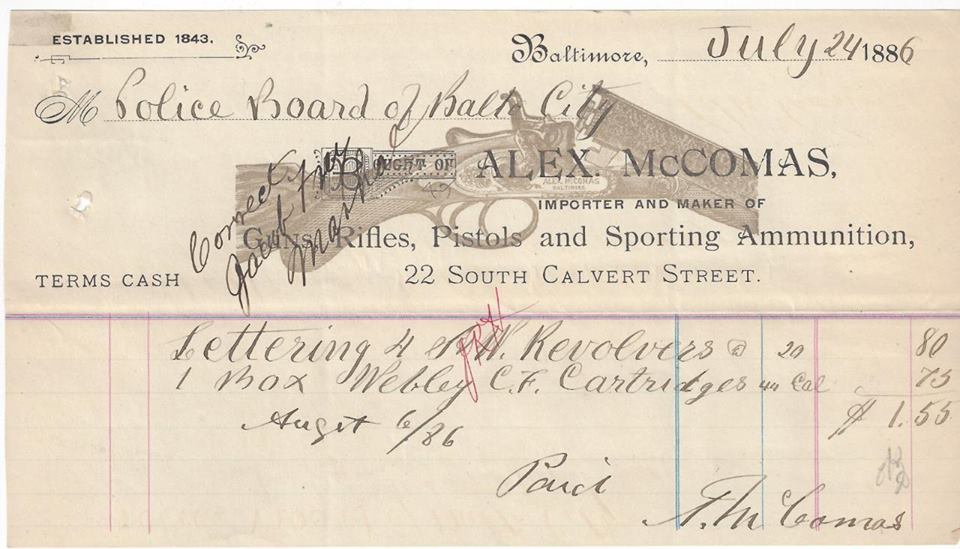 ESTABLISHED 1843.
Baltimore, July 24 1886
M Police Board of Balto City
BOUGHT OF ALEX. McCOMAS,
ALEX. McCOMAS
BALTIMORE
IMPORTER AND MAKER OF
Guns, Rifles, Pistols and Sporting Ammunition,
TERMS CASH
22 SOUTH CALVERT STREET.
Correct
Jacob Frey
Marshal
Lettering 4 Revolvers @ 20 80
1 Box Webley C.F. Cartridges 44 Cal 75
$ 1.55
Augst 6/86
Paid
A. McComas